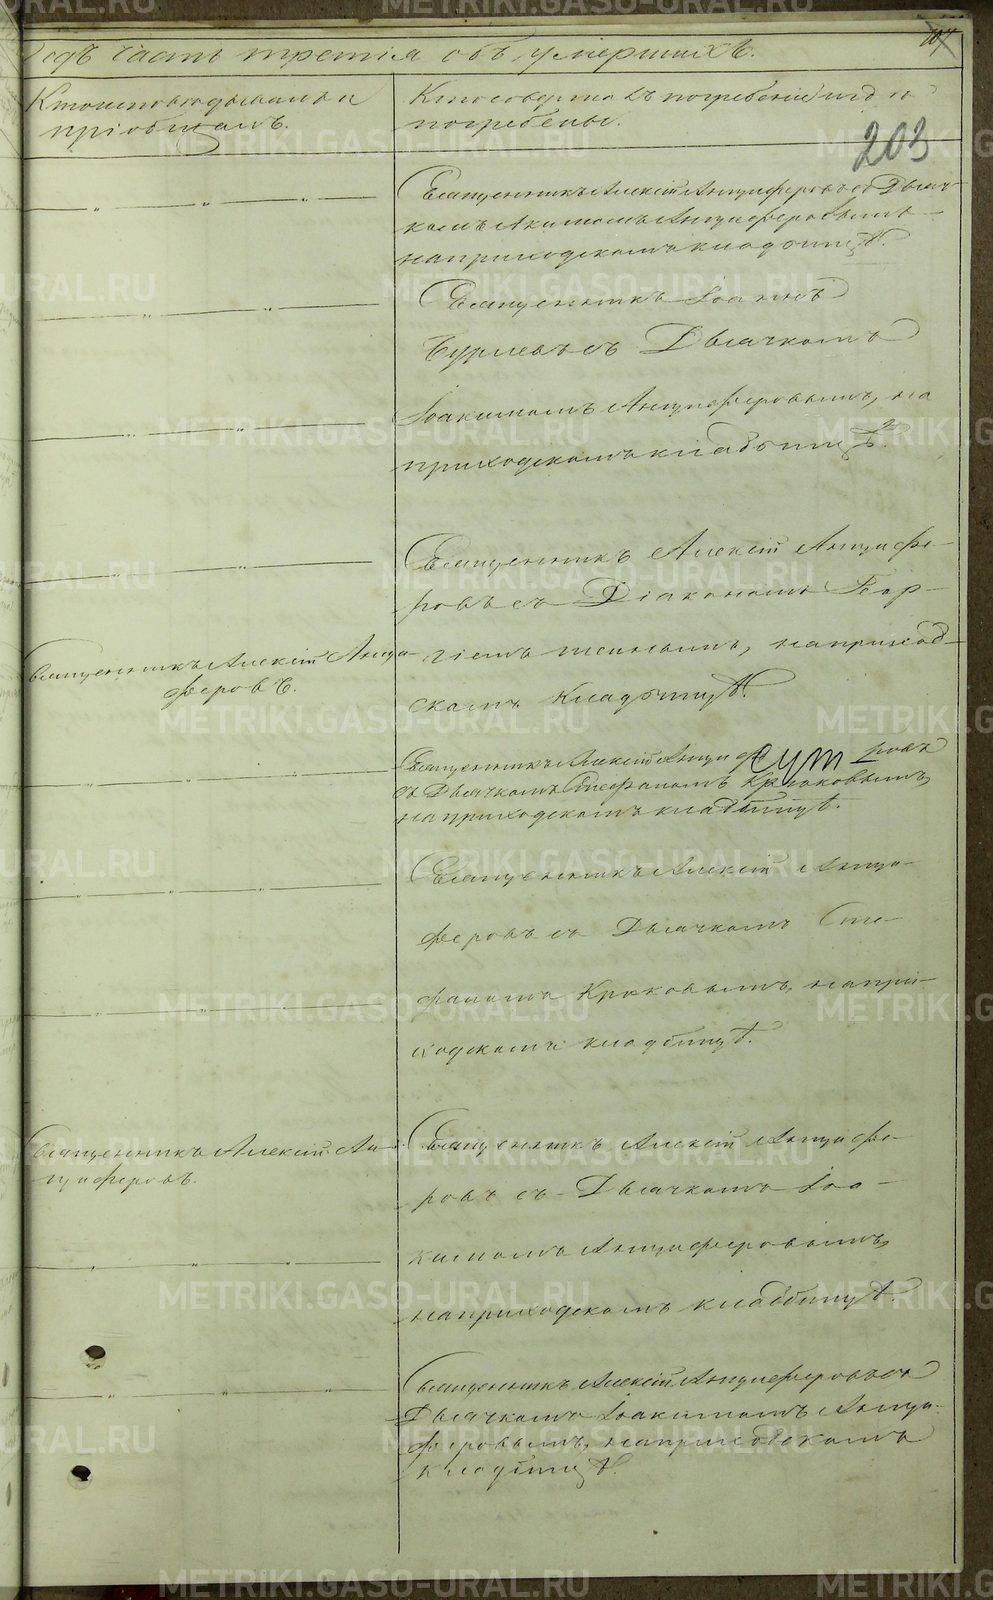 годъ часть третія объ умершихъ.
Кто исповѣдывалъ и
пріобщалъ.
Кто совершалъ погребеніе и гдѣ
погребены.
203
Священникъ Алексій Анциферовъ съ Дьяч-
комъ Акимомъ Анциферовымъ
на приходскомъ кладбищѣ.
Священникъ Іоаннъ
съ Дьячкомъ
Іоакимомъ Анциферовымъ, на
приходскомъ кладбищѣ.
Священникъ Алексій Анцифе-
ровъ съ Діакономъ Геор-
гіемъ на приход-
скомъ кладбищѣ.
Священникъ Алексій Анци-
феровъ.
Священникъ Алексій Анциферовъ
съ Дьячкомъ Стефаномъ Крюковымъ,
на приходскомъ кладбищѣ.
Священникъ Алексій Анци-
феровъ съ Дьячкомъ Сте-
фаномъ Крюковымъ, на при-
ходскомъ кладбищѣ.
Священникъ Алексій Ан-
циферовъ.
Священникъ Алексій Анцифе-
ровъ съ Дьячкомъ Іоа-
кимомъ Анциферовымъ,
на приходскомъ кладбищѣ.
Священникъ Алексій Анциферовъ съ
Дьячкомъ Іоакимомъ Анци-
феровымъ, на приходскомъ
кладбищѣ.
METRIKI.GASO-URAL.RU